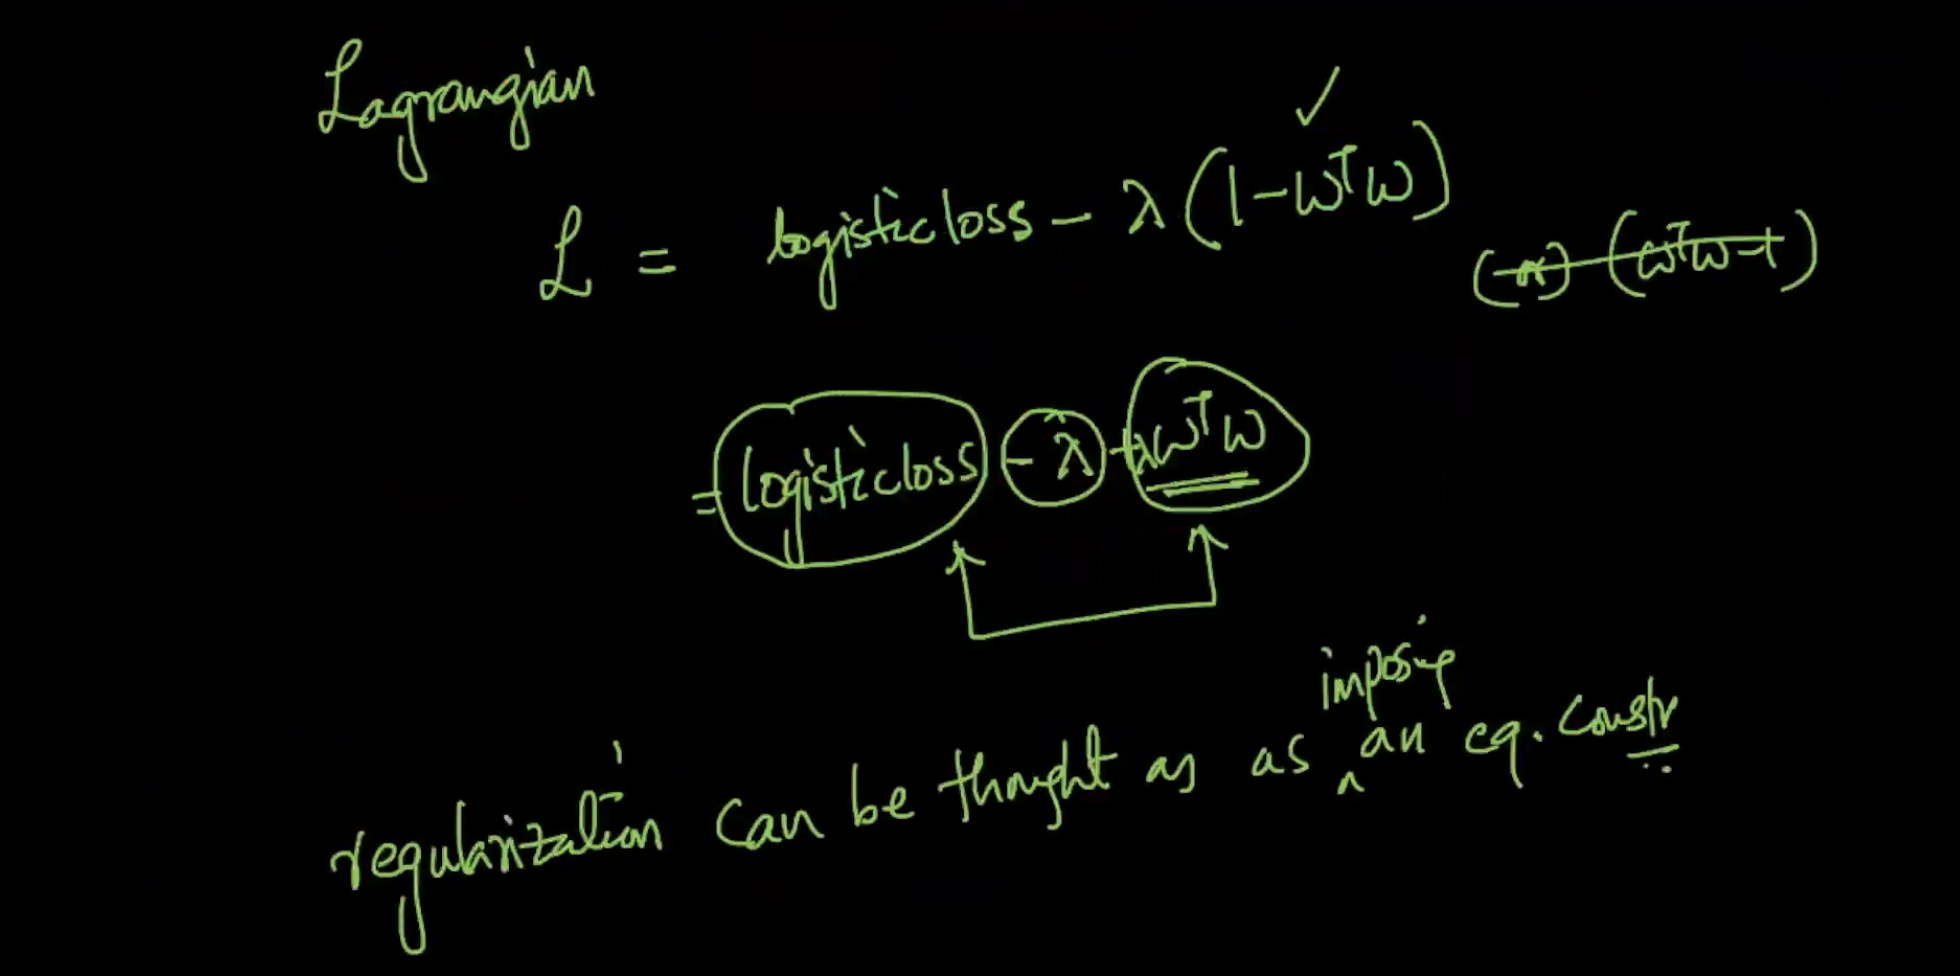 Lagrangian
L = logistic loss - λ (1 - wᵀw)
(wᵀw - 1)
= logistic loss - λ + λwᵀw
imposing
regularization can be thought as as ^ an eq. constr